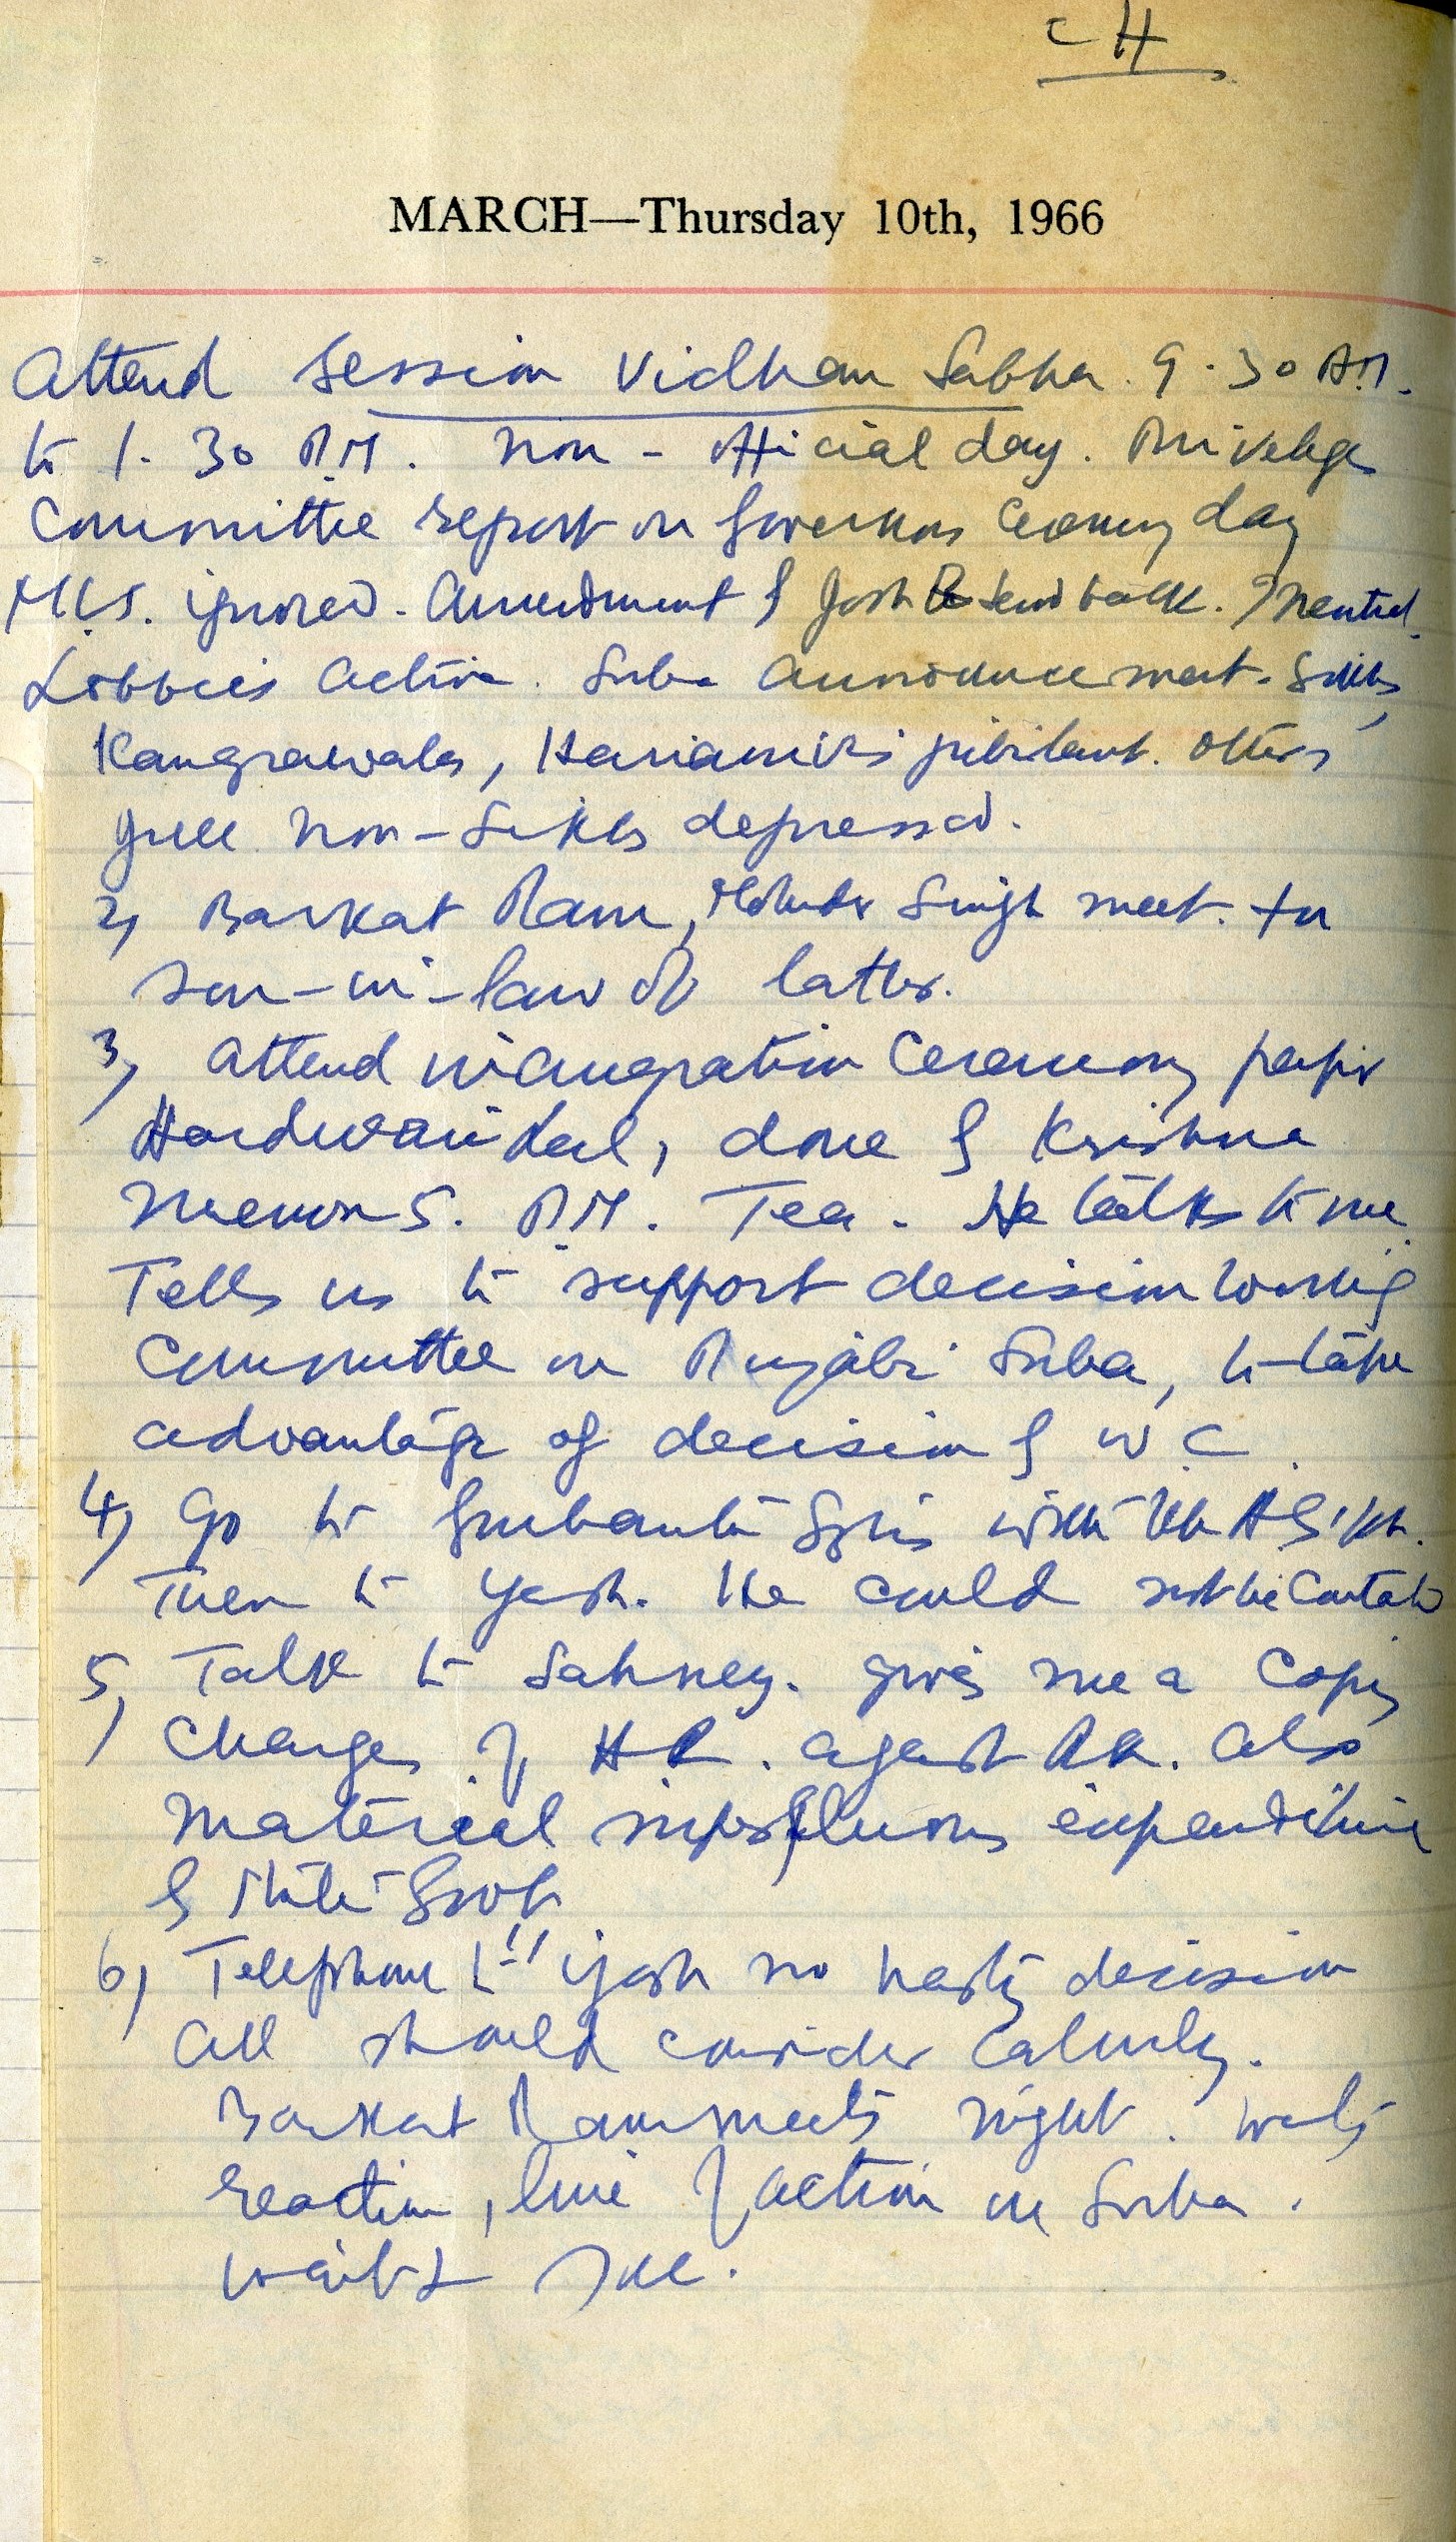 CH
MARCH—Thursday 10th, 1966
Attend Session Vidhan Sabha. 9.30 A.M.
to 1.30 P.M. Non-official day. Privelege
Committee report on Governors Ceremony day
ignored. Amendment of Josh to send back. I neutral.
Lobbies active. Suba announcement. Sikhs,
Kangrawalas, Harianvis jubilant. Others
Non-Sikhs depressed.
2) Barkat Ram, Mohinder Singh meet.
son-in-law of latter.
3) Attend inaugration Ceremony paper
Hardwari Lal, done by Krishna
Menon 5. P.M. Tea. He talks to me
Tells us to support decision Working
Committee on Punjabi Suba, to take
advantage of decision of W.C.
4) Go to Gurbanta Singh with
Then to Yash. He could not be
5) Talk to Sahney. gives me a Copy
Charges of H.L. against R.K. Also
Material superfluous expenditure
of State Govt
6) Telephone to Yash no hasty decision
All should consider Calmly.
Barkat Ram meets night. wants
reaction, line of action on Suba.
wait & see.